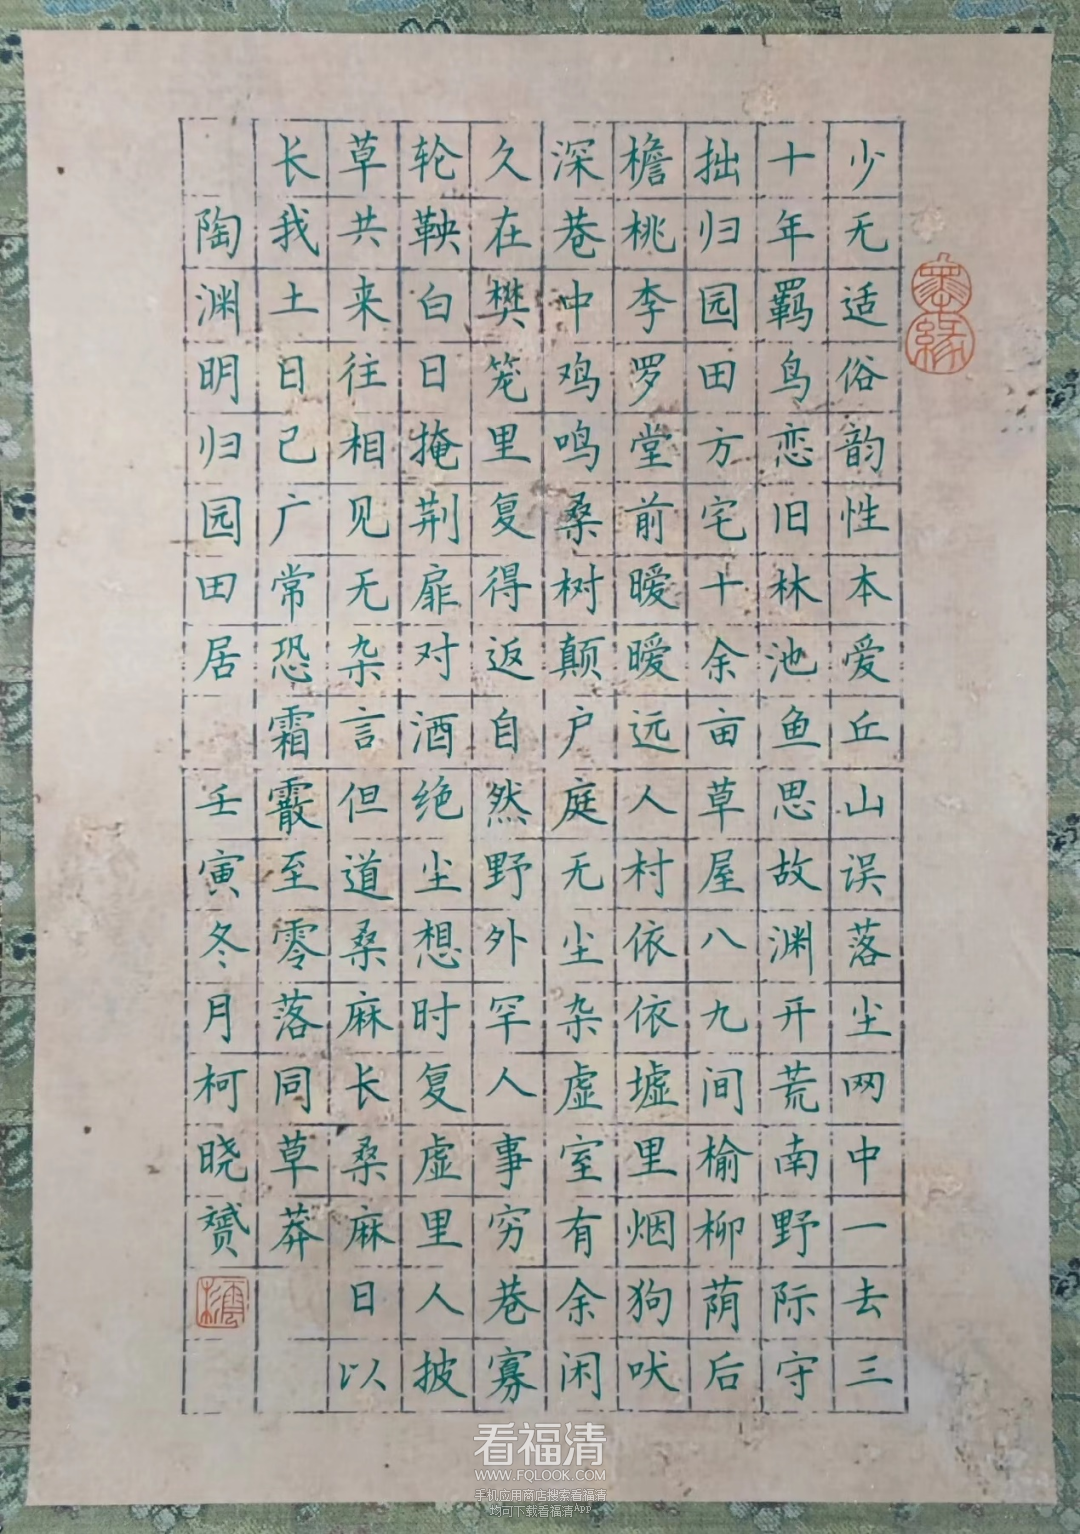 少无适俗韵性本爱丘山误落尘网中一去三
十年羁鸟恋旧林池鱼思故渊开荒南野际守
拙归园田方宅十余亩草屋八九间榆柳荫后
檐桃李罗堂前暧暧远人村依依墟里烟狗吠
深巷中鸡鸣桑树颠户庭无尘杂虚室有余闲
久在樊笼里复得返自然野外罕人事穷巷寡
轮鞅白日掩荆扉对酒绝尘想时复虚里人披
草共来往相见无杂言但道桑麻长桑麻日以
长我土日己广常恐霜霰至零落同草莽
陶渊明归园田居 壬寅冬月柯晓赟
看福清
WWW.FQLOOK.COM
手机应用商店搜索看福清
均可下载看福清App